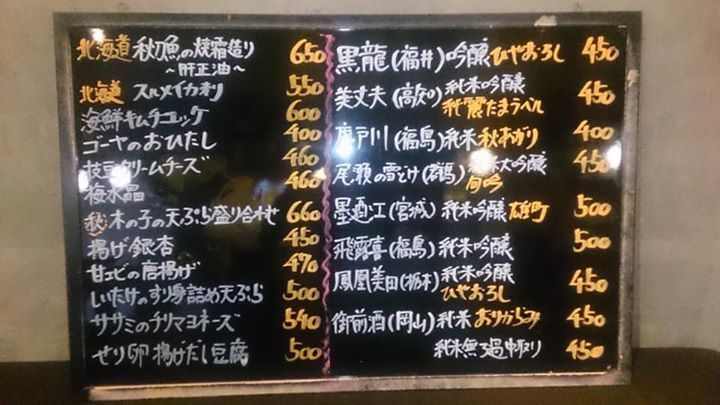 北海道 秋刀魚の焼霜造り 650
~肝正油~
北海道 スルメイカ刺 550
海鮮キムチユッケ 600
ゴーヤのおひたし 400
枝豆クリームチーズ 460
梅水晶 460
秋木の子の天ぷら盛り合わせ 660
揚げ銀杏 450
甘エビの唐揚げ 470
しいたけのすり身詰め天ぷら 500
ササミのチリマヨネーズ 540
せり卵揚げだし豆腐 500
黒龍(福井)吟醸 ひやおろし 450
美丈夫(高知)純米吟醸 450
純麗たまラベル
廣戸川(福島)純米 秋あがり 400
尾瀬の雪どけ(群馬)純米大吟醸 450
旬吟
墨廼江(宮城)純米吟醸 雄町 500
飛露喜(福島)純米吟醸 500
鳳凰美田(栃木)純米吟醸 450
ひやおろし
御前酒(岡山)純米 おりがらみ 450
純米無ろ過中取り 450